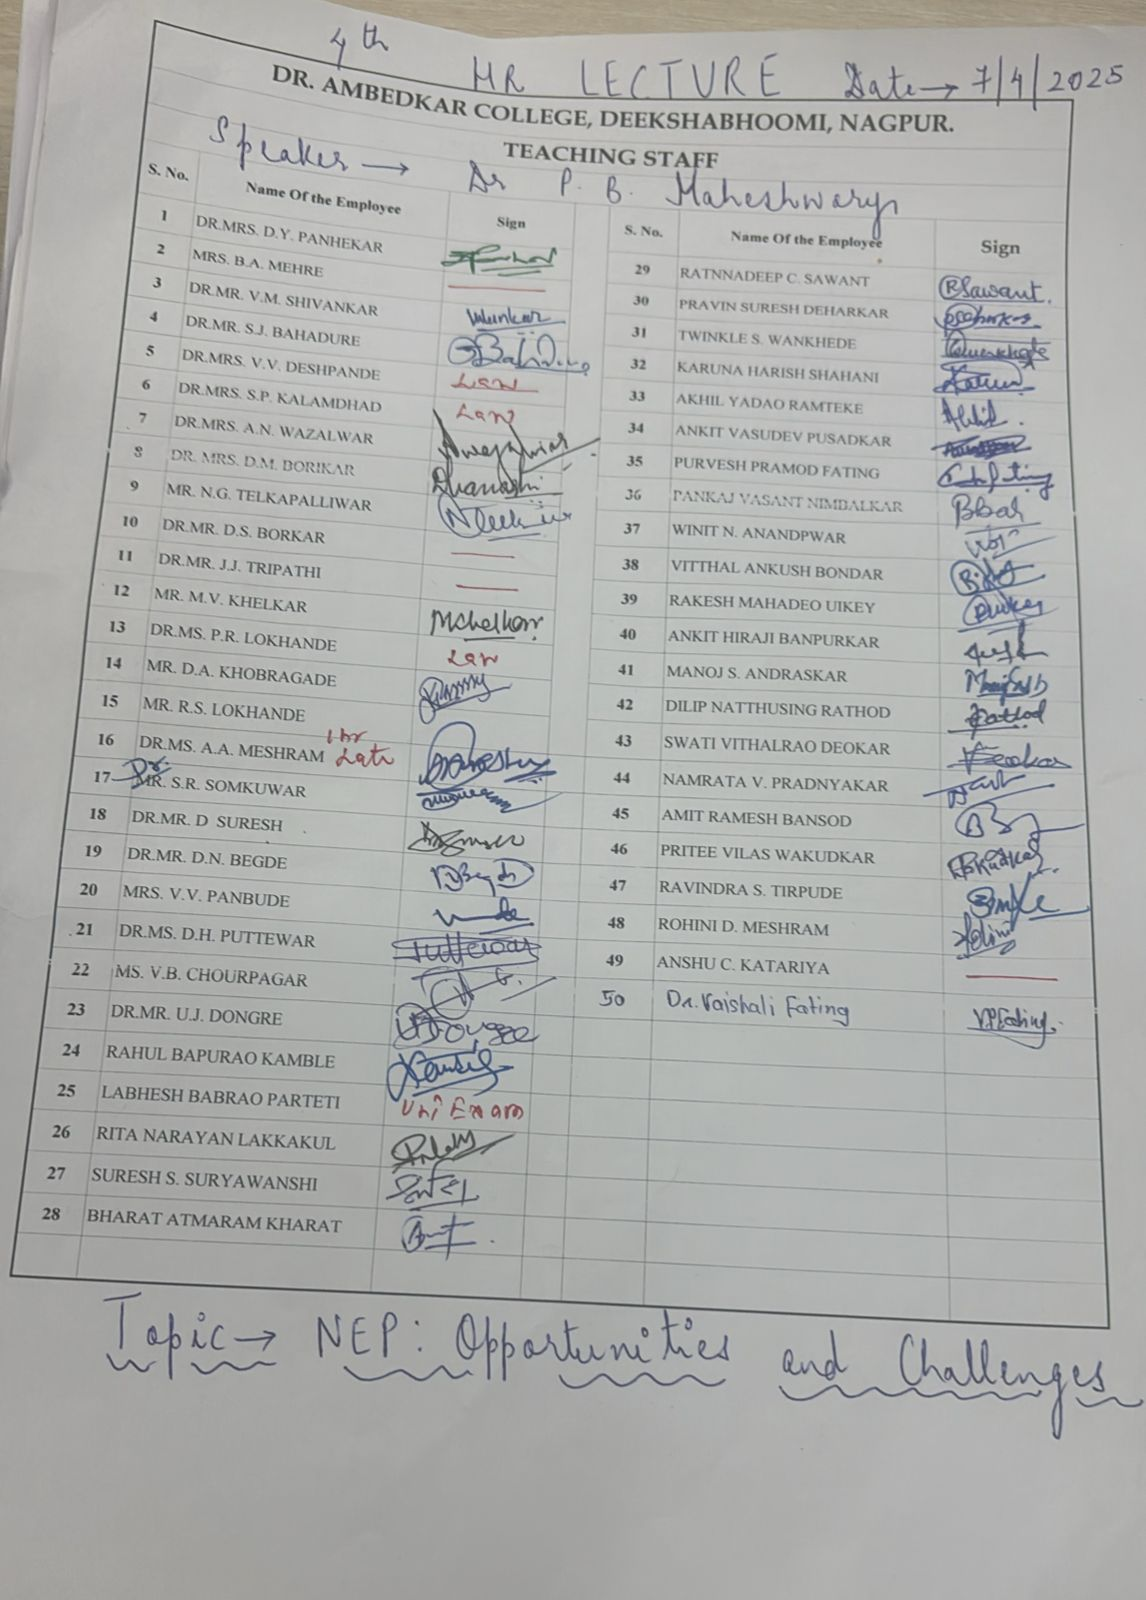 4th HR LECTURE Date → 7/4/2025
DR. AMBEDKAR COLLEGE, DEEKSHABHOOMI, NAGPUR.
TEACHING STAFF
Speaker → Dr P. B. Maheshwary
S. No. Name Of the Employee Sign
1 DR.MRS. D.Y. PANHEKAR
2 MRS. B.A. MEHRE
3 DR.MR. V.M. SHIVANKAR
4 DR.MR. S.J. BAHADURE
5 DR.MRS. V.V. DESHPANDE Law
6 DR.MRS. S.P. KALAMDHAD Law
7 DR.MRS. A.N. WAZALWAR
8 DR. MRS. D.M. BORIKAR
9 MR. N.G. TELKAPALLIWAR
10 DR.MR. D.S. BORKAR
11 DR.MR. J.J. TRIPATHI
12 MR. M.V. KHELKAR
13 DR.MS. P.R. LOKHANDE Law
14 MR. D.A. KHOBRAGADE
15 MR. R.S. LOKHANDE
16 DR.MS. A.A. MESHRAM 1 hr Late
17 Dr. MR. S.R. SOMKUWAR
18 DR.MR. D SURESH
19 DR.MR. D.N. BEGDE
20 MRS. V.V. PANBUDE
21 DR.MS. D.H. PUTTEWAR Puttewar
22 MS. V.B. CHOURPAGAR
23 DR.MR. U.J. DONGRE
24 RAHUL BAPURAO KAMBLE
25 LABHESH BABRAO PARTETI Uni Exam
26 RITA NARAYAN LAKKAKUL
27 SURESH S. SURYAWANSHI
28 BHARAT ATMARAM KHARAT
S. No. Name Of the Employee Sign
29 RATNNADEEP C. SAWANT RSawant.
30 PRAVIN SURESH DEHARKAR
31 TWINKLE S. WANKHEDE
32 KARUNA HARISH SHAHANI
33 AKHIL YADAO RAMTEKE Akhil.
34 ANKIT VASUDEV PUSADKAR
35 PURVESH PRAMOD FATING
36 PANKAJ VASANT NIMBALKAR
37 WINIT N. ANANDPWAR
38 VITTHAL ANKUSH BONDAR
39 RAKESH MAHADEO UIKEY
40 ANKIT HIRAJI BANPURKAR
41 MANOJ S. ANDRASKAR
42 DILIP NATTHUSING RATHOD Rathod
43 SWATI VITHALRAO DEOKAR
44 NAMRATA V. PRADNYAKAR
45 AMIT RAMESH BANSOD
46 PRITEE VILAS WAKUDKAR
47 RAVINDRA S. TIRPUDE
48 ROHINI D. MESHRAM Rohini
49 ANSHU C. KATARIYA
50 Dr. Vaishali Fating VPFating.
Topic → NEP: Opportunities and Challenges